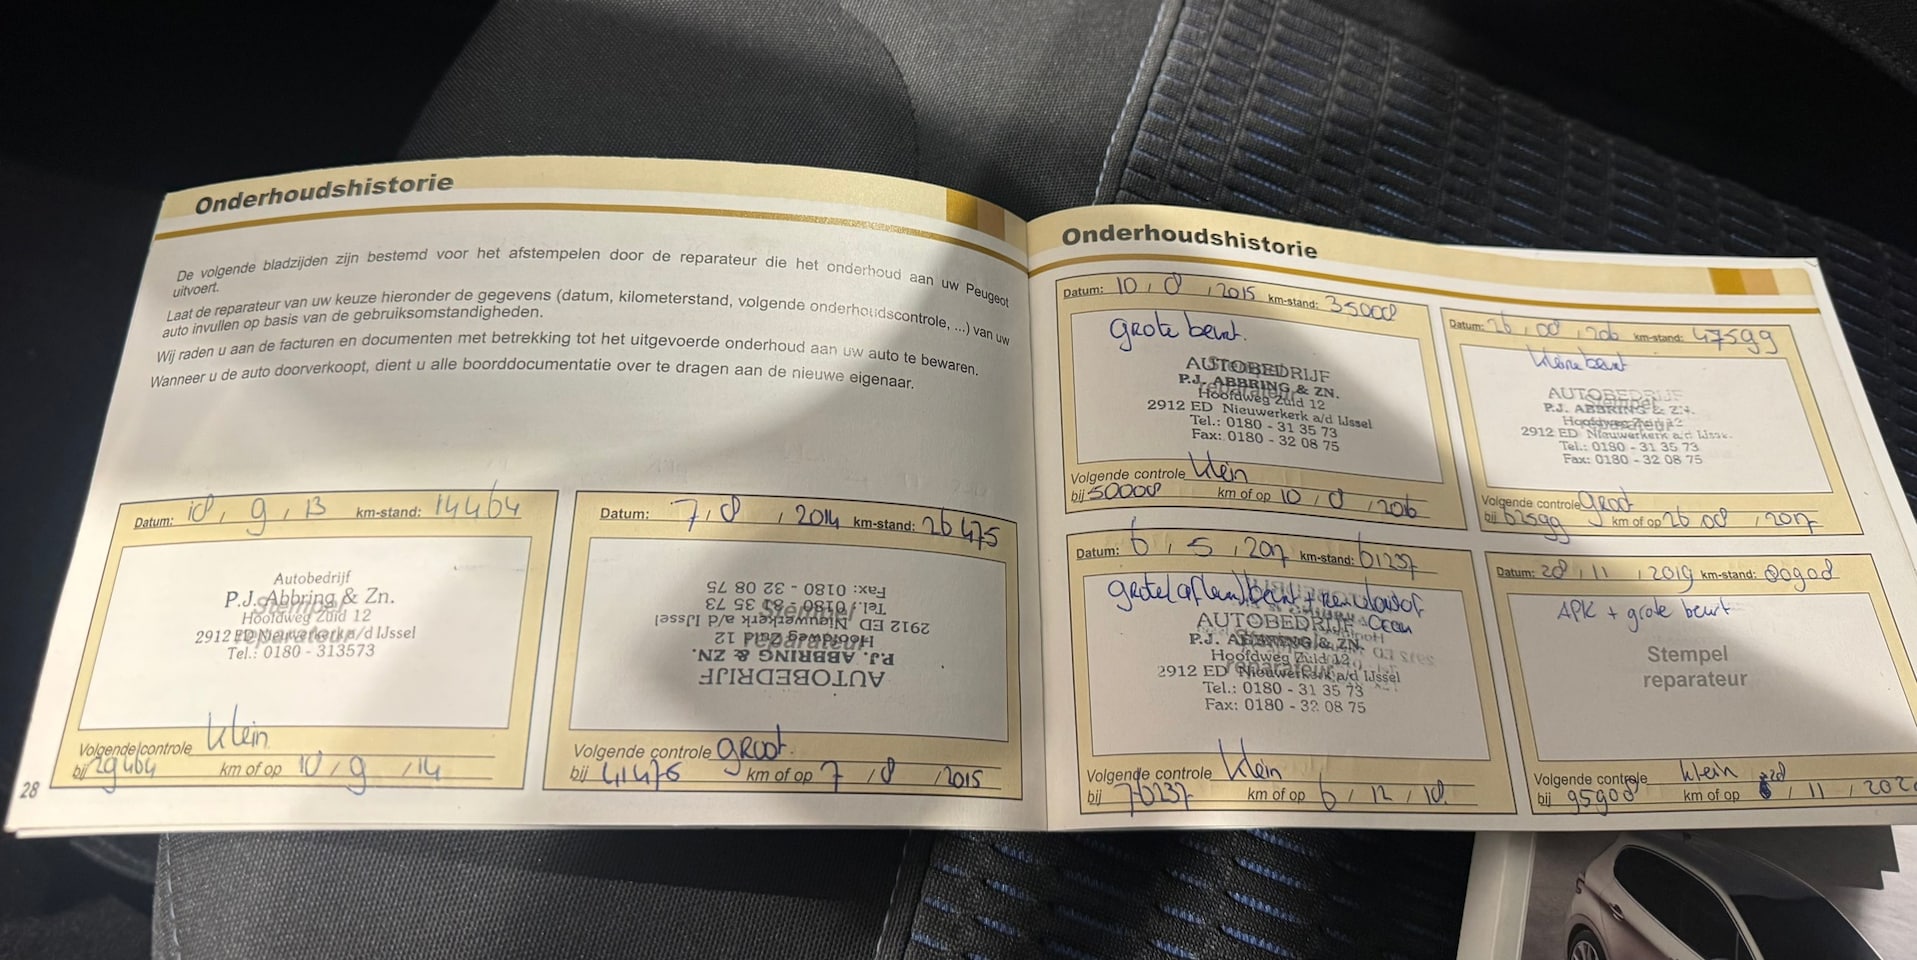 Onderhoudshistorie
De volgende bladzijden zijn bestemd voor het afstempelen door de reparateur die het onderhoud aan uw Peugeot
uitvoert.
Laat de reparateur van uw keuze hieronder de gegevens (datum, kilometerstand, volgende onderhoudscontrole, ...) van uw
auto invullen op basis van de gebruiksomstandigheden.
Wij raden u aan de facturen en documenten met betrekking tot het uitgevoerde onderhoud aan uw auto te bewaren.
Wanneer u de auto doorverkoopt, dient u alle boorddocumentatie over te dragen aan de nieuwe eigenaar.
Datum: 10, 9, 13 km-stand: 14464
Autobedrijf
P.J. Abbring & Zn.
Stempel
Hoofdweg Zuid 12
reparateur
2912 ED Nieuwerkerk a/d IJssel
Tel.: 0180 - 313573
Volgende controle klein
bij 29464 km of op 10 / 9 / 14
Datum: 7, 8, 2014 km-stand: 26475
AUTOBEDRIJF
P.J. ABBRING & ZN.
Hoofdweg Zuid 12
2912 ED Nieuwerkerk a/d IJssel
Tel.: 0180 - 31 35 73
Fax: 0180 - 32 08 75
Stempel
reparateur
Volgende controle groot.
bij 41475 km of op 7 / 8 / 2015
28
Onderhoudshistorie
Datum: 10, 8, 2015 km-stand: 35008
grote beurt.
AUTOBEDRIJF
P.J. ABBRING & ZN.
Hoofdweg Zuid 12
2912 ED Nieuwerkerk a/d IJssel
Tel.: 0180 - 31 35 73
Fax: 0180 - 32 08 75
Volgende controle klein
bij 50008 km of op 10 / 8 / 2016
Datum: 26, 08, 2016 km-stand: 47599
kleine beurt
AUTOBEDRIJF
Stempel
P.J. ABBRING & ZN.
Hoofdweg Zuid 12
reparateur
2912 ED Nieuwerkerk a/d IJssel
Tel.: 0180 - 31 35 73
Fax: 0180 - 32 08 75
Volgende controle groot
bij 62599 km of op 26 08 / 2017
Datum: 6, 5, 2017 km-stand: 61237
grote beurt +
AUTOBEDRIJF
P.J. ABBRING & ZN.
Hoofdweg Zuid 12
reparateur
2912 ED Nieuwerkerk a/d IJssel
Tel.: 0180 - 31 35 73
Fax: 0180 - 32 08 75
Volgende controle klein
bij 76237 km of op 6 / 12 / 18
Datum: 28, 11, 2019 km-stand: 80908
APK + grote beurt
Stempel
reparateur
Volgende controle klein
bij 95908 km of op 28 / 11 / 202